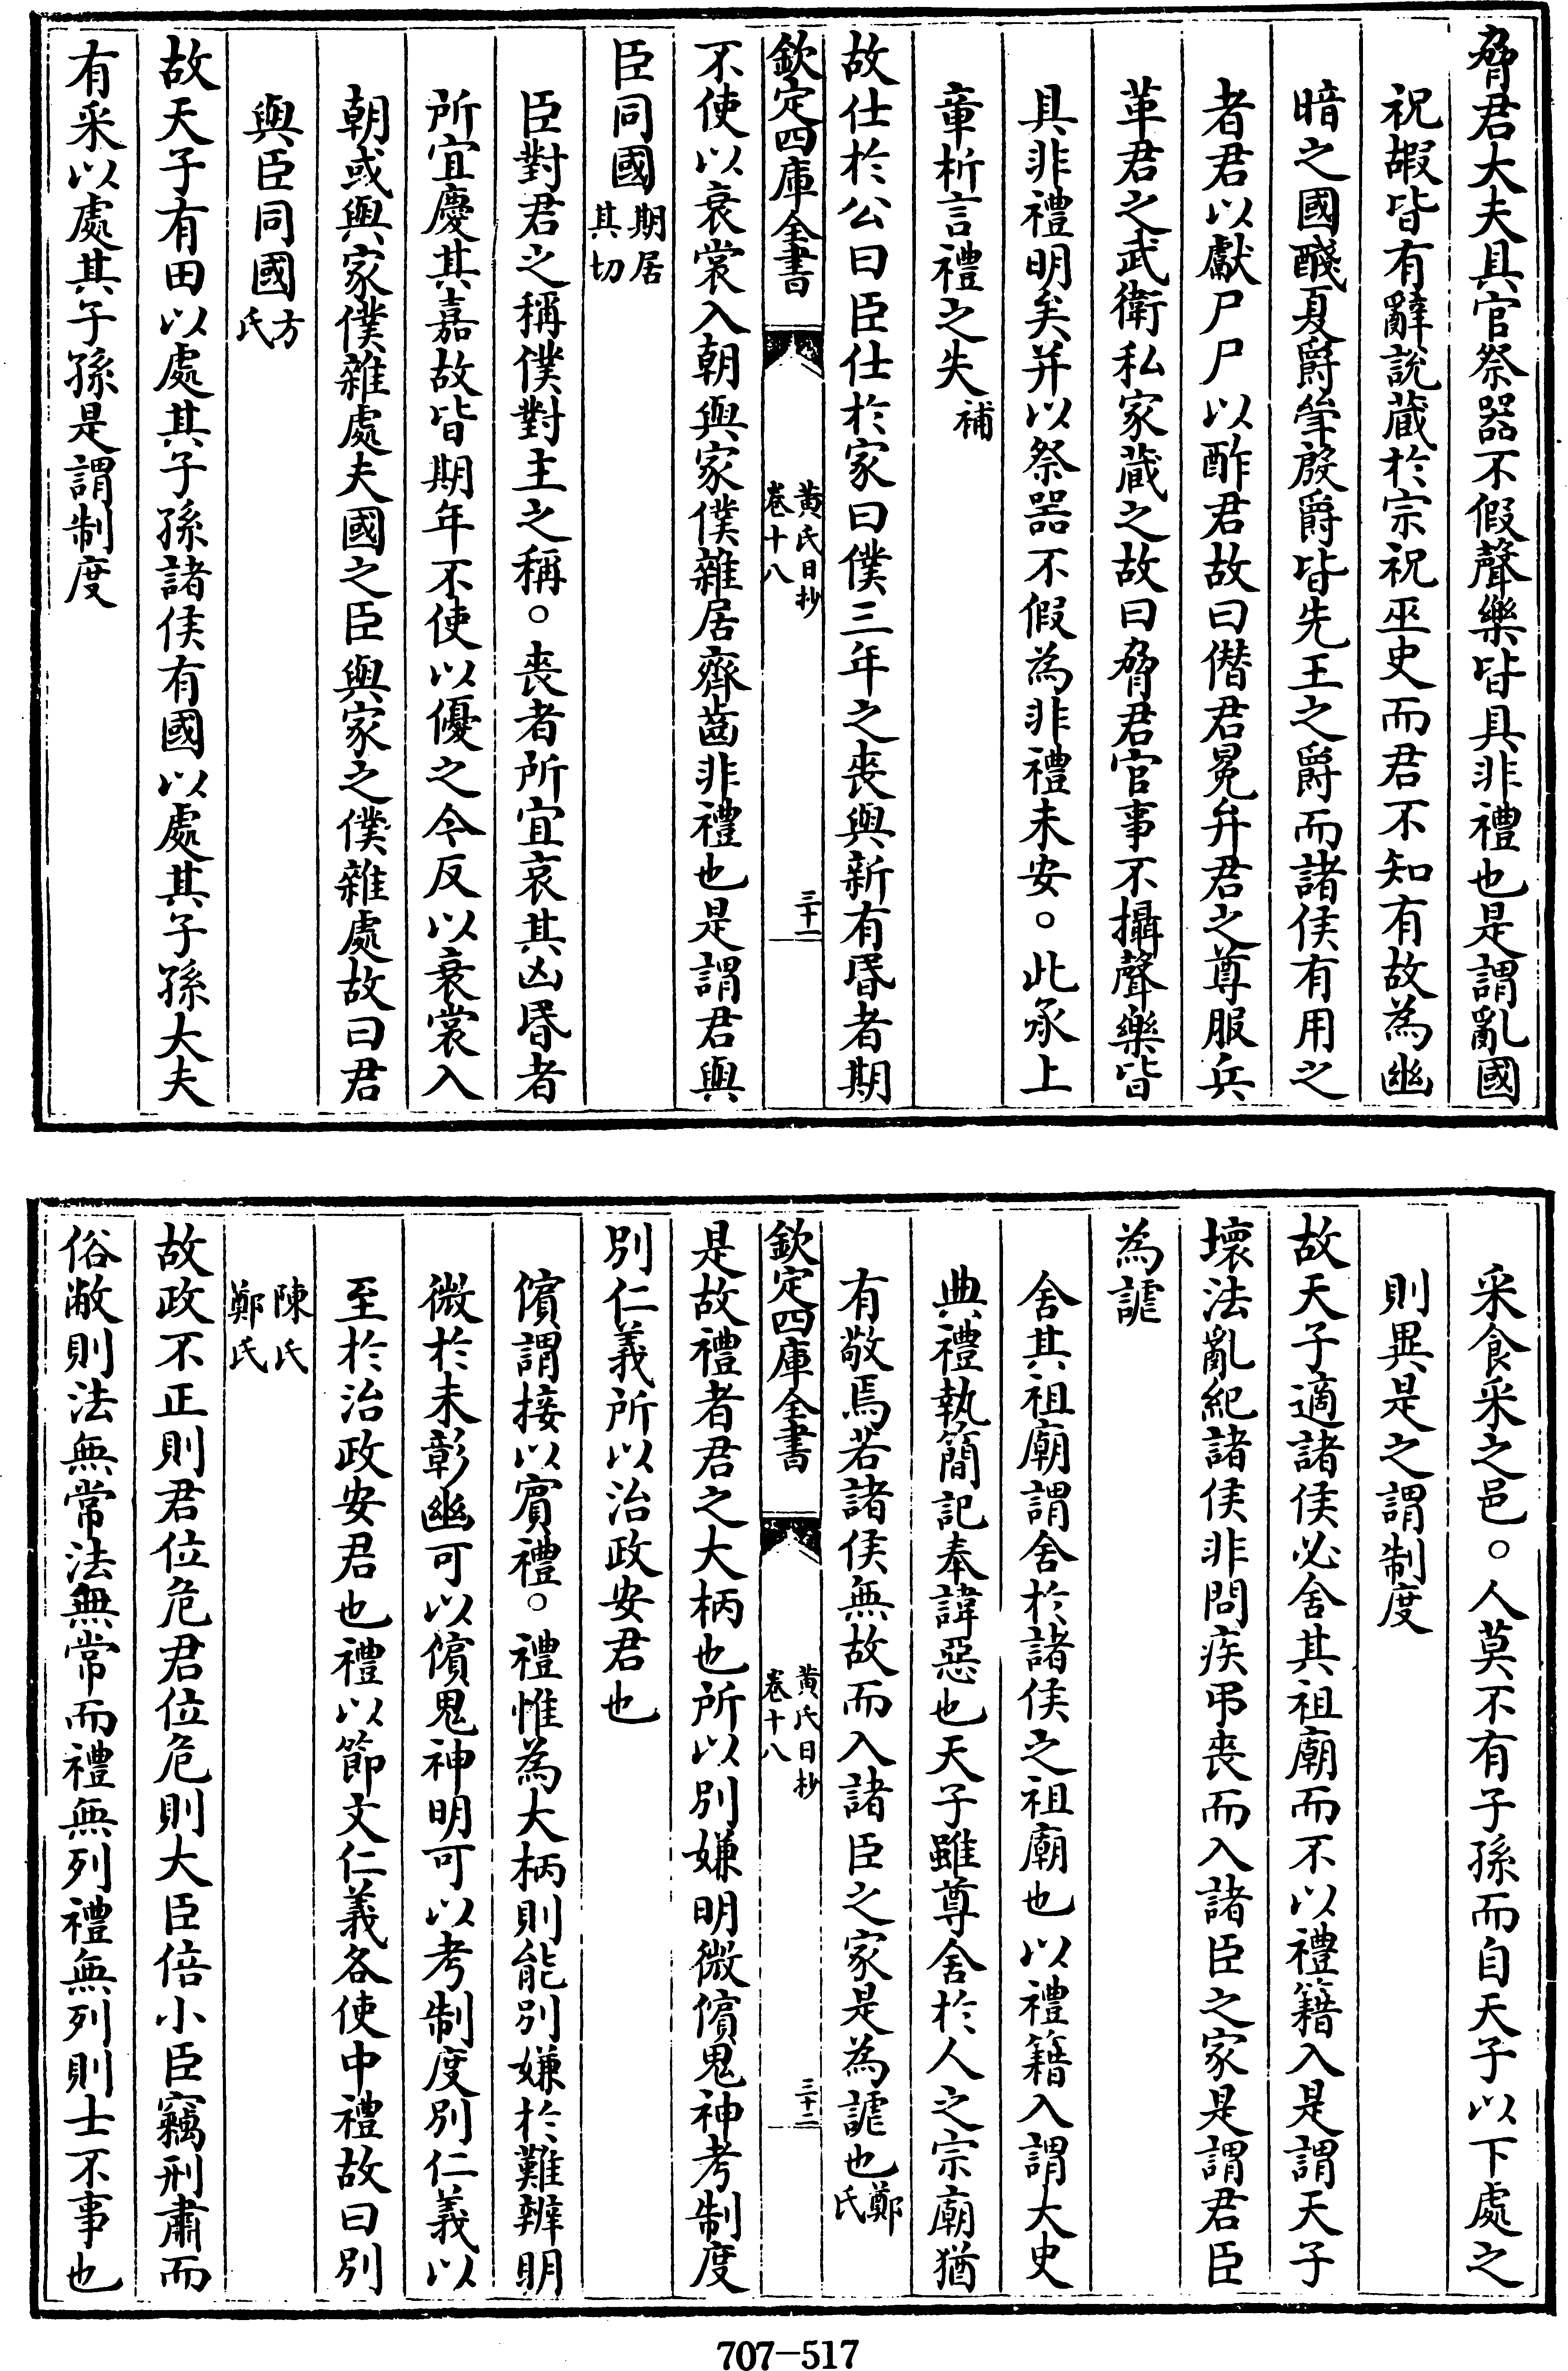 脅君大夫具官祭器不假聲樂皆具非禮也是謂亂國
祝嘏皆有辭說蔵於宗祝巫史而君不知有故為幽
暗之國醆夏爵斝殷爵皆先王之爵而諸侯有用之
者君以獻尸尸以酢君故曰僭君冕弁君之尊服兵
革君之武衛私家蔵之故曰脅君官事不攝聲樂皆
具非禮明矣并以祭器不假為非禮未安○此承上
章析言禮之失補
故仕於公曰臣仕於家曰僕三年之喪與新有昏者期
欽定四庫全書
黄氏日抄
卷十八
三十一
不使以衰裳入朝與家僕雜居齊齒非禮也是謂君與
臣同國期居其切
臣對君之稱僕對主之稱○喪者所宜哀其凶昏者
所宜慶其嘉故皆期年不使以優之今反以衰裳入
朝或與家僕雜處夫國之臣與家之僕雜處故曰君
與臣同國方氏
故天子有田以處其子孫諸侯有國以處其子孫大夫
有采以處其子孫是謂制度
采食采之邑○人莫不有子孫而自天子以下處之
則異是之謂制度
故天子適諸侯必舍其祖廟而不以禮籍入是謂天子
壞法亂紀諸侯非問疾弔喪而入諸臣之家是謂君臣
為謔
舍其祖廟謂舍於諸侯之祖廟也以禮籍入謂大史
典禮執簡記奉諱惡也天子雖尊舍於人之宗廟猶
有敬焉若諸侯無故而入諸臣之家是為謔也鄭氏
欽定四庫全書
黄氏日抄
卷十八
三十二
是故禮者君之大柄也所以別嫌明微儐鬼神考制度
別仁義所以治政安君也
儐謂接以賓禮○禮惟為大柄則能別嫌於難辨明
微於未彰幽可以儐鬼神明可以考制度別仁義以
至於治政安君也禮以節文仁義各使中禮故曰別
陳氏
鄭氏
故政不正則君位危君位危則大臣倍小臣竊刑肅而
俗敝則法無常法無常而禮無列禮無列則士不事也
707-517